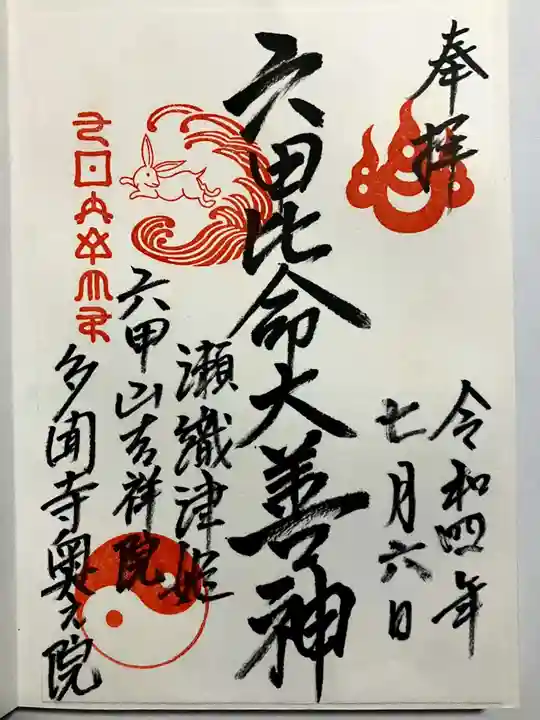 奉拝
令和四年
七月六日
六甲比命大善神
瀬織津姫
六甲山吉祥院
多聞寺奥之院